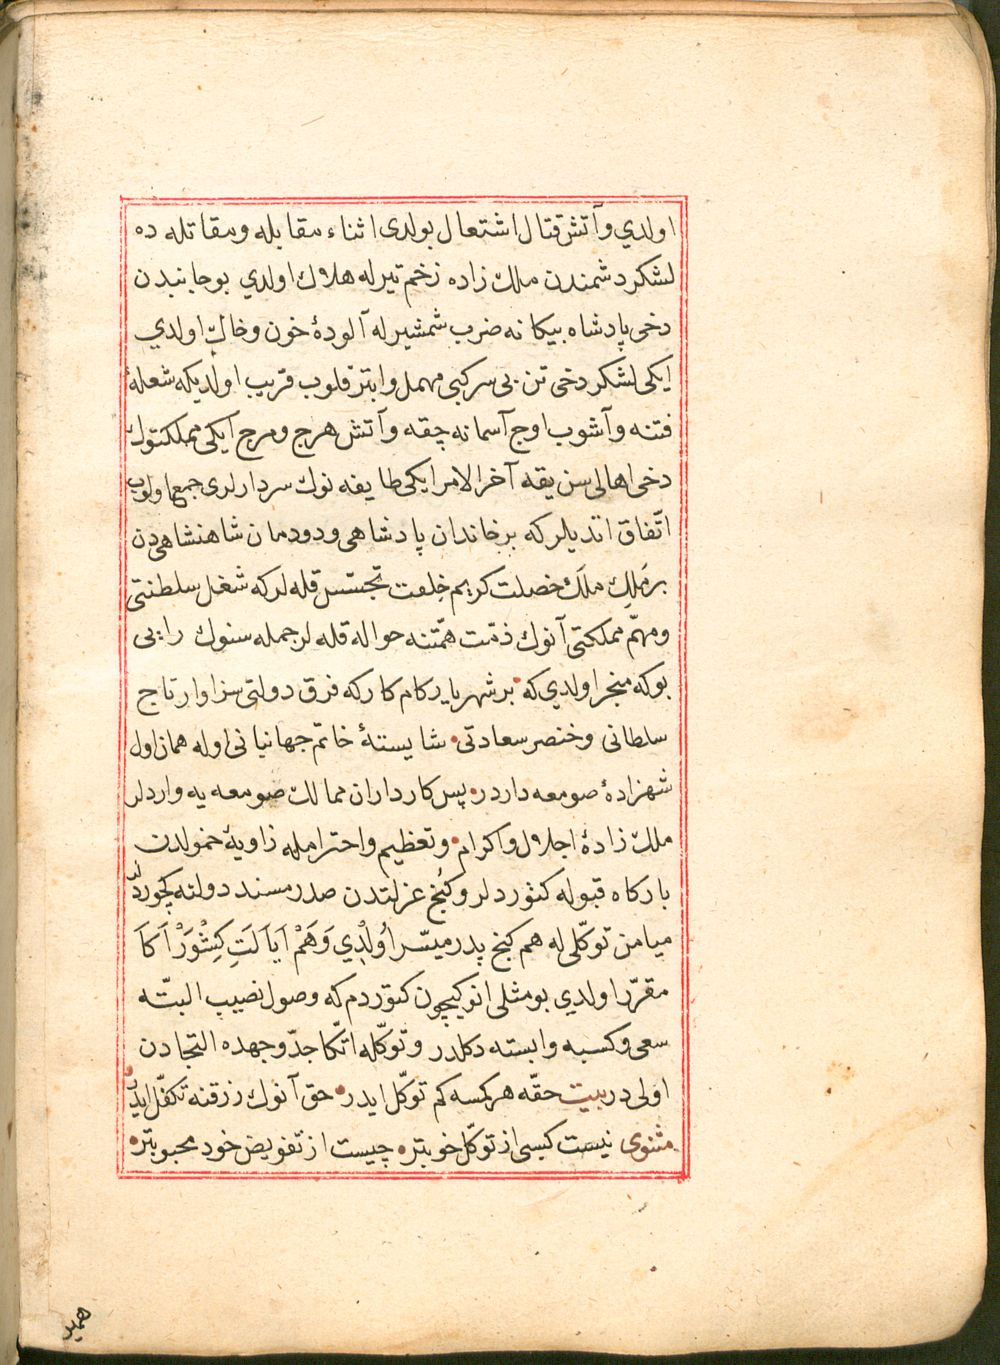 اولدي وآتش قتال اشتعال بولدی اثناء مقابله ومقاتله ده
لشکر دشمندن ملك زاده زخم تیرله هلاك اولدي بو جانبدن
دخی پادشاه بیکانه ضرب شمشیرله آلودهٔ خون وخاك اولدي
ایکی لشکر دخی تن بی سر کبی مهمل وابتر قلوب قریب اولدیکه شعلهٔ
فتنه وآشوب اوج آسمانه چقه وآتش هرج ومرج ایکی مملکتوك
دخی اهالی سن یقه آخر الامر ایکی طایفه نوك سردارلری جمع اولوب
اتّفاق اتدیلر که بر خاندان پادشاهی ودودمان شاهنشاهی دن
بر مَلِك ملَك خصلت کریم خِلقت تجسّس قله لر که شغل سلطنتی
ومهمّ مملکتی آنوك ذمّت همّتنه حواله قله لر جمله سنوك رایی
بوکه منجر اولدي که بر شهریار کامکار که فرق دولتی سزاوار تاج
سلطانی وخنصر سعادتی شایستهٔ خاتم جهانبانی اوله همان اول
شهزادهٔ صومعه داردر پس کارداران ممالك صومعه یه واردلر
ملك زادهٔ اجلال واکرام وتعظیم واحترامله زاویهٔ خمولدن
بارکاه قبوله کتوردلر وکُنج عزلتدن صدر مسند دولته کچوردلر
میامن توکّلی له هم کنج پدر میسّر اُولْدِي وَهَمْ اَیاَلَتِ کِشْوَرْ اَکاَ
مقرّر اولدي بو مثلی انوکیچون کتوردم که وصول نصیب البتّه
سعی وکسبه وابسته دکلدر وتوکّله اتّکا جدّ وجهده التجادن
اولی در بیت حقّه هر کمسه کم توکّل ایدر حق آنوك رزقنه تکفّل ایدر
مثنوی نیست کسبی از توکّل خوبتر چیست از تفویض خود محبوبتر
همیر